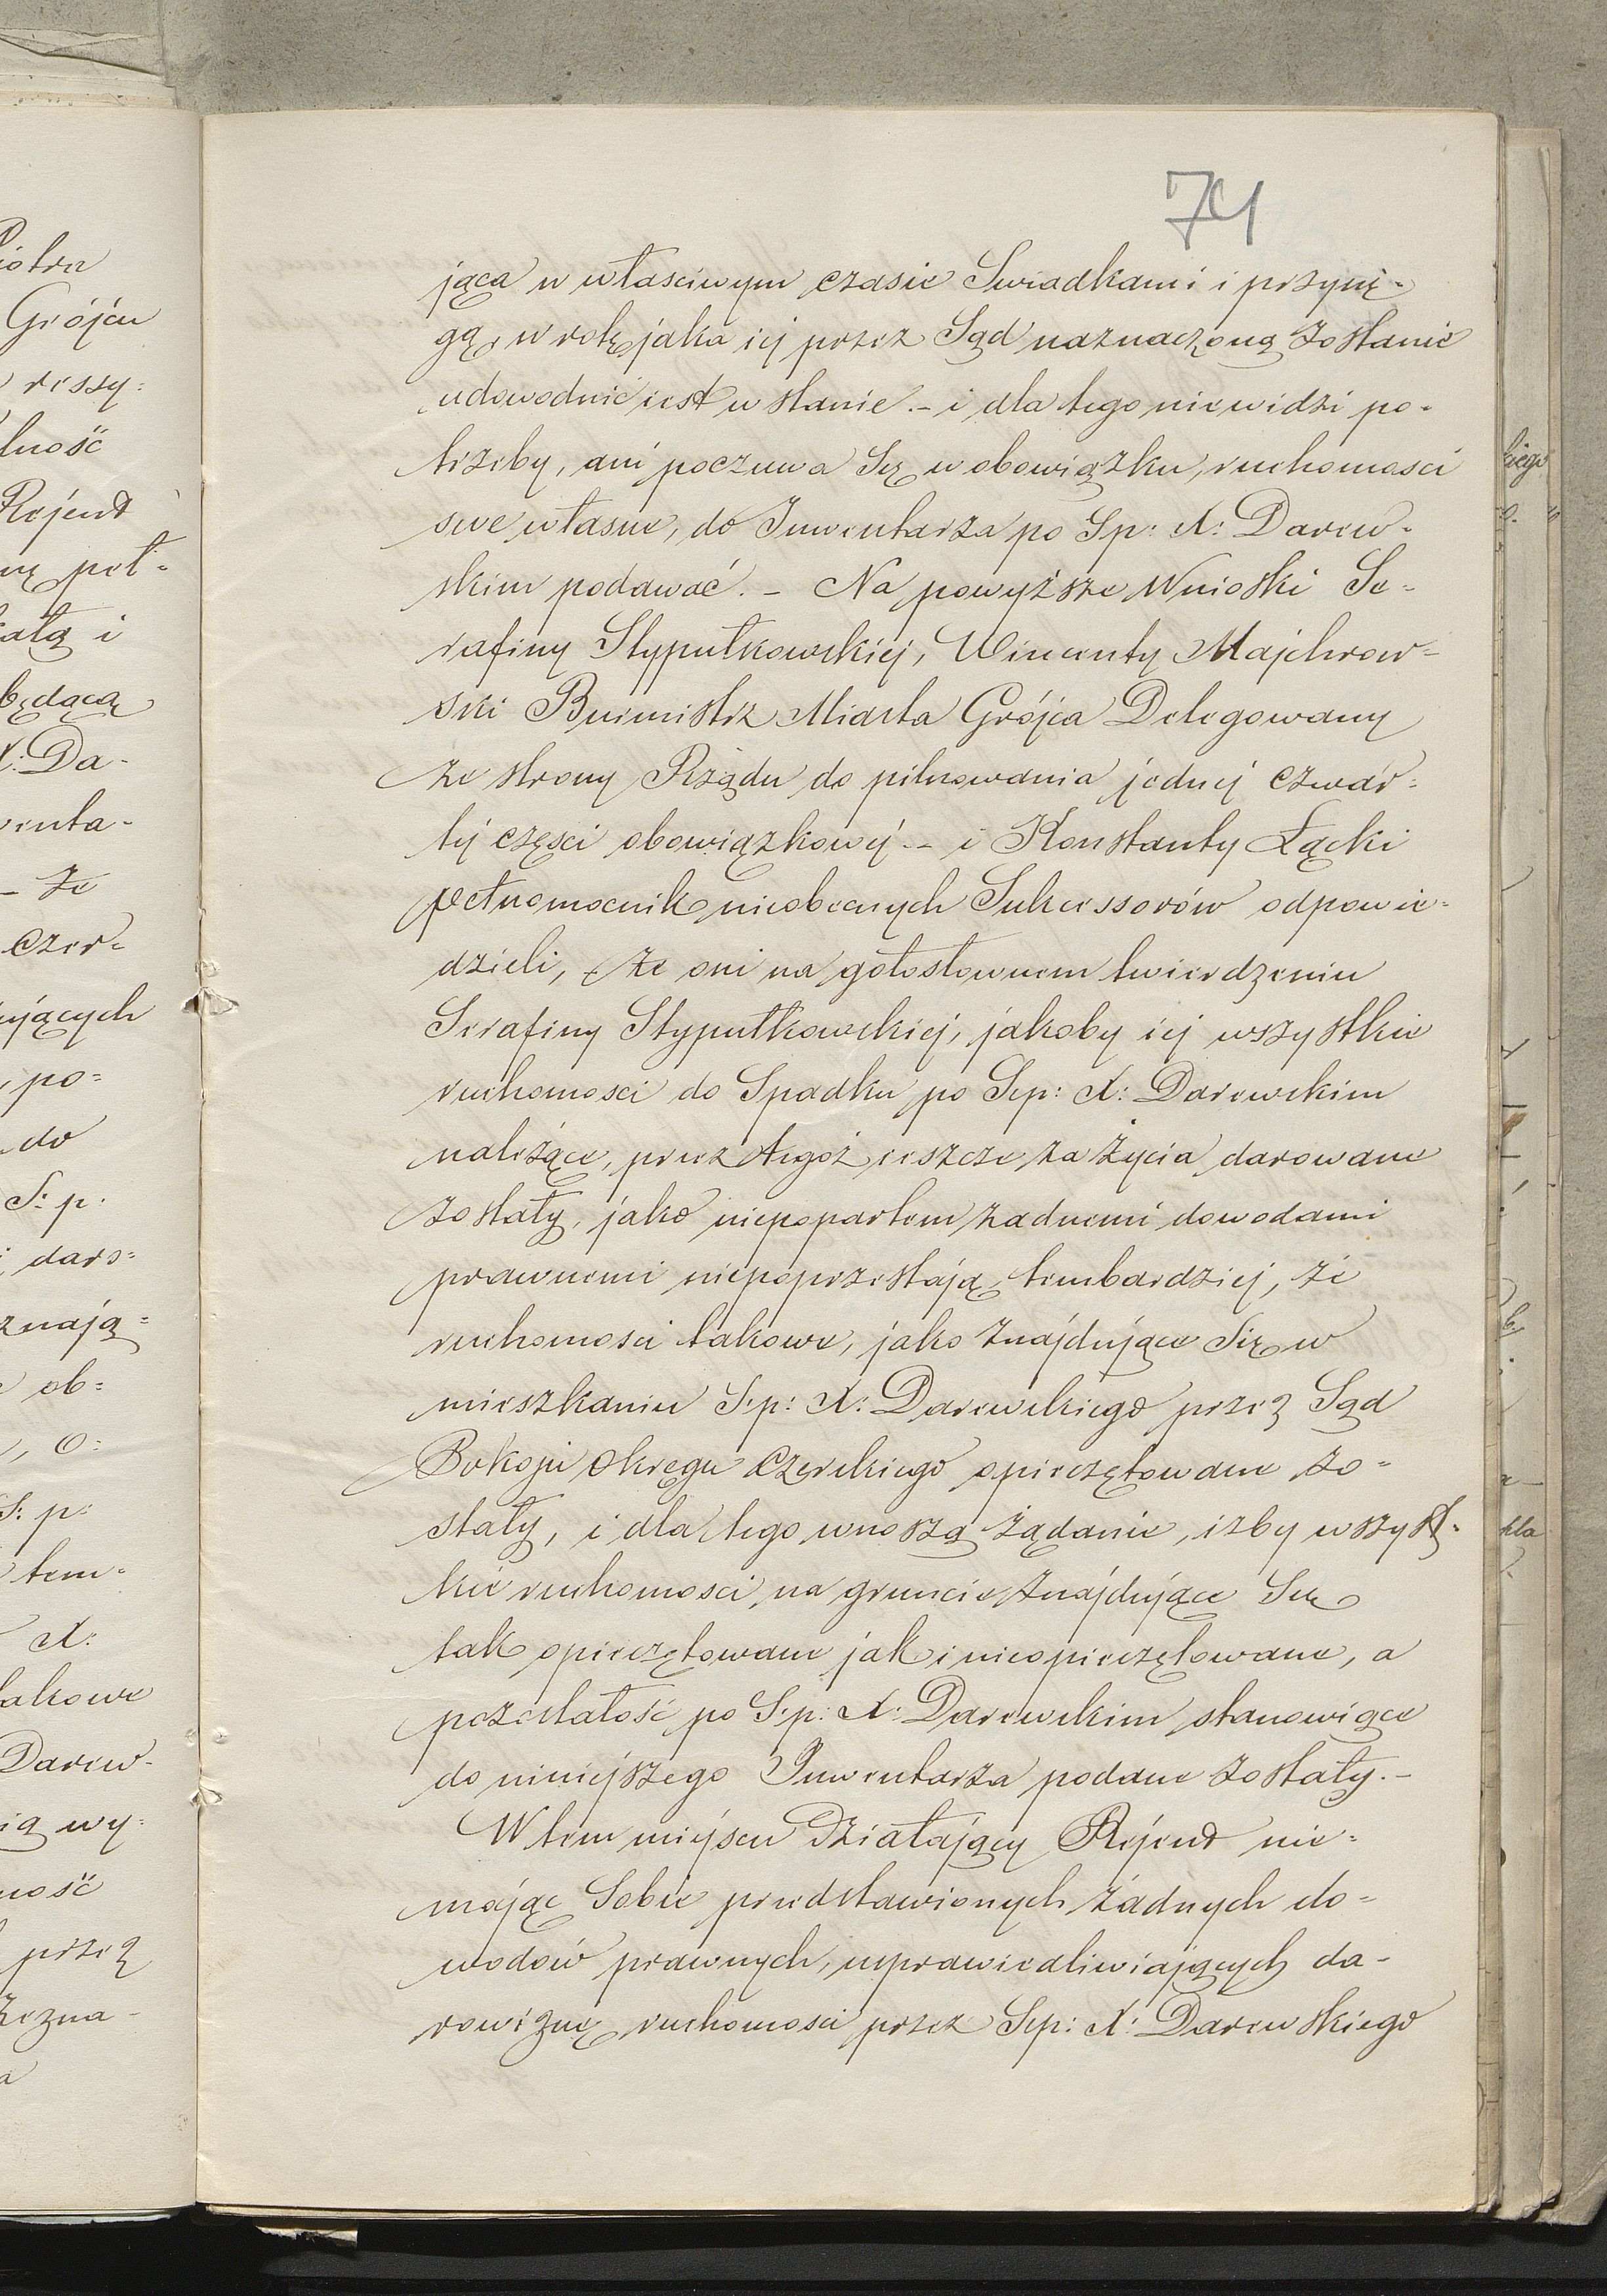 74
jąca w własciwym czasie Swiadkami i przysię-
gą, w rotę jaka iej przez Sąd naznaczoną zostanie
udowodnić iest w stanie. – i dla tego niewidzi po-
trzeby, ani poczuwa Się w obowiązku, ruchomosci
swe własne, do Inwentarza po Sp: X: Darew-
skim podawać. – Na powyższe Wnioski Se-
rafiny Stypułkowskiej, Wincenty Majchrow-
ski Burmistrz Miasta Grójca Delegowany
ze strony Rządu do pilnowania jednej czwar-
tej części obowiązkowej. – i Konstanty Łącki
pełnomocnik nieobecnych Sukcessorów odpowie-
dzieli, że oni na gołosłownem twierdzeniu
Serafiny Stypułkowskiej, jakoby iej wszystkie
ruchomosci do Spadku po Sp: X: Darewskim
należące, przez tegoż ieszcze za życia darowane
zostały, jako niepopartem żadnemi dowodami
prawnemi niepoprzestają, tembardziej, że
ruchomosci takowe, jako znajdujące Się w
mieszkaniu S:p: X: Darewskiego przez Sąd
Pokoju Okręgu Czerskiego opieczętowane zo-
stały, i dla tego wnoszą żądanie, iżby wszyst-
kie ruchomosci, na gruncie znajdujące Się
tak opieczętowane jak i nieopieczętowane, a
pozostałość po S:p: X: Darewskim stanowiące
do niniejszego Inwentarza podane zostały. –
W tem miejscu Działający Rejent nie-
mając Sobie przedstawionych żadnych do-
wodów prawnych, usprawiedliwiających da-
rowiznę ruchomosci przez S:p: X: Darewskiego
iotra
Grójcu
ressy-
lność
Rejent
pet-
i
będącą
X: Da-
wenta-
– że
Czer-
ujących
po-
do
S: p.
daro-
znają-
ob-
, O:
S: p:
tem-
X:
takowe
Darew-
wy-
ność
przez
zezna-
a
kiego